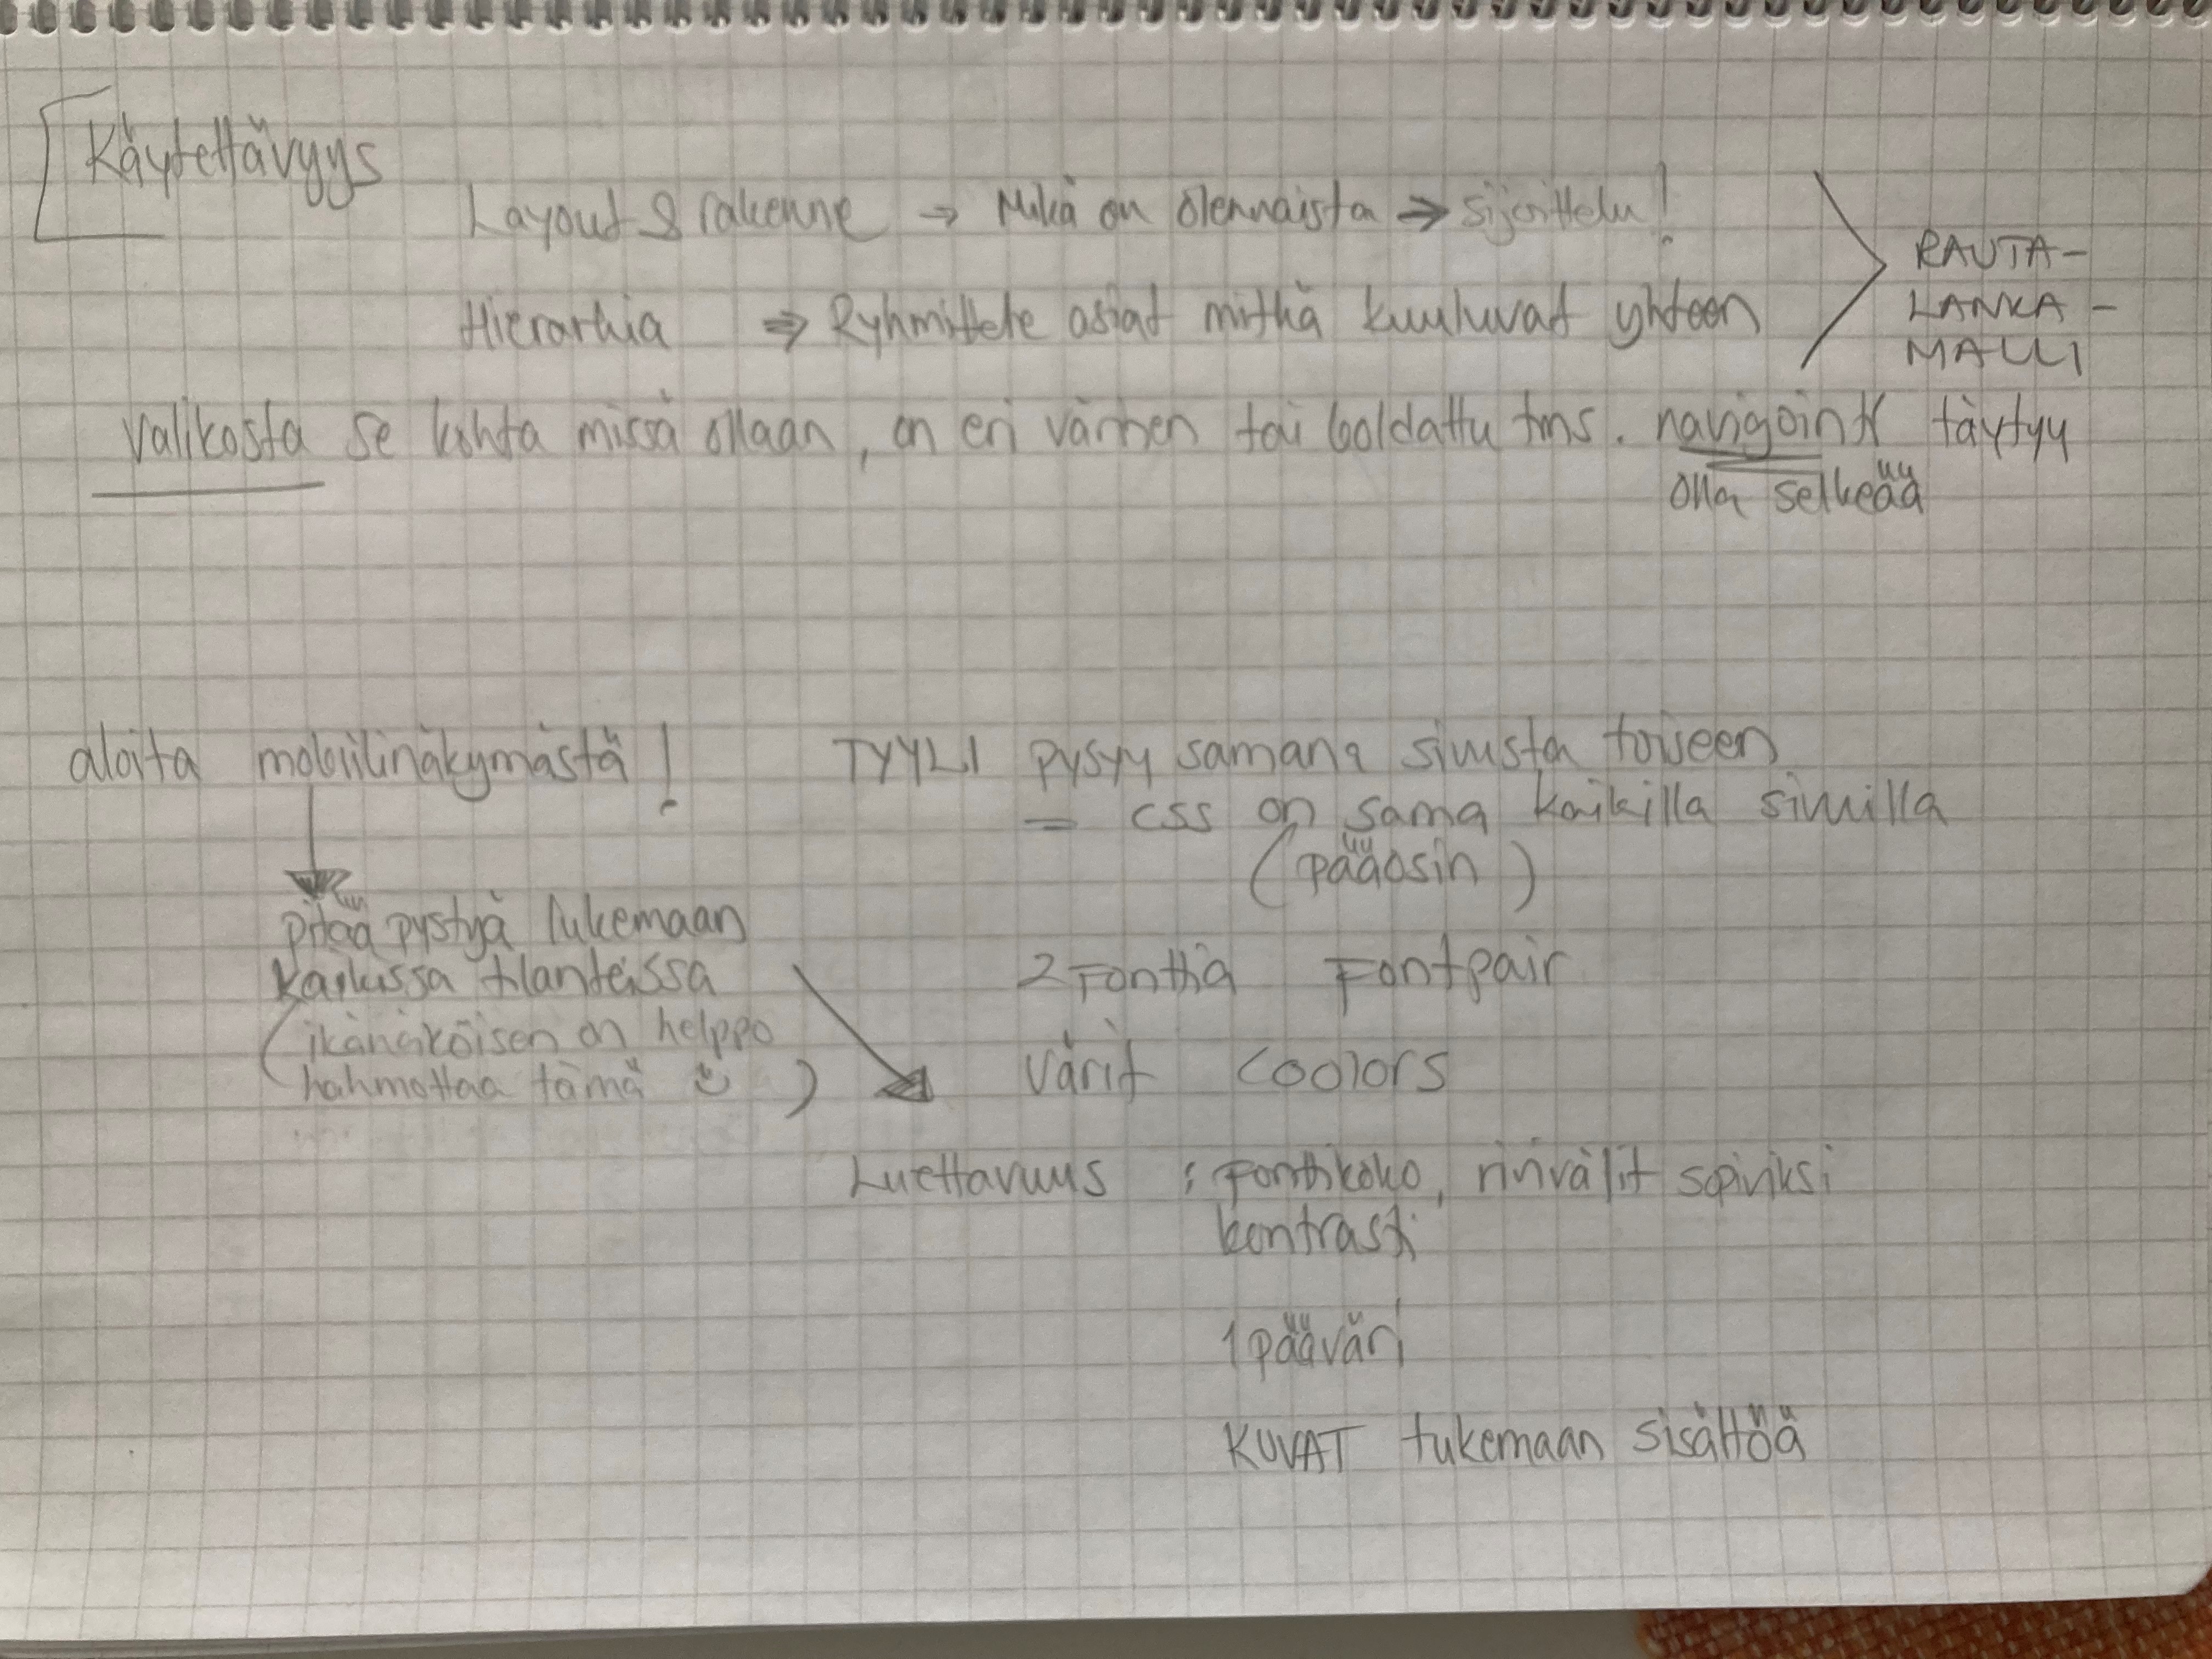 Käytettävyys
Layout & rakenne → Mikä on olennaista ⇒ sijoittelu!
Hierarkia ⇒ Ryhmittele asiat mitkä kuuluvat yhteen
RAUTA-
LANKA-
MALLI
valikosta se kohta missä ollaan, on eri värinen tai boldattu tms. navigointi täytyy
olla selkeää
aloita mobiilinäkymästä!
pitää pystyä lukemaan
kaikissa tilanteissa
(ikänäköisen on helppo
hahmottaa tämä ü )
TYYLI pysyy samana sivusta toiseen
= CSS on sama kaikilla sivuilla
(pääosin)
2 Fonttia Fontpair
Värit coolors
Luettavuus : Fonttikoko, rivivälit sopiviksi
kontrasti
1 pääväri
KUVAT tukemaan sisältöä